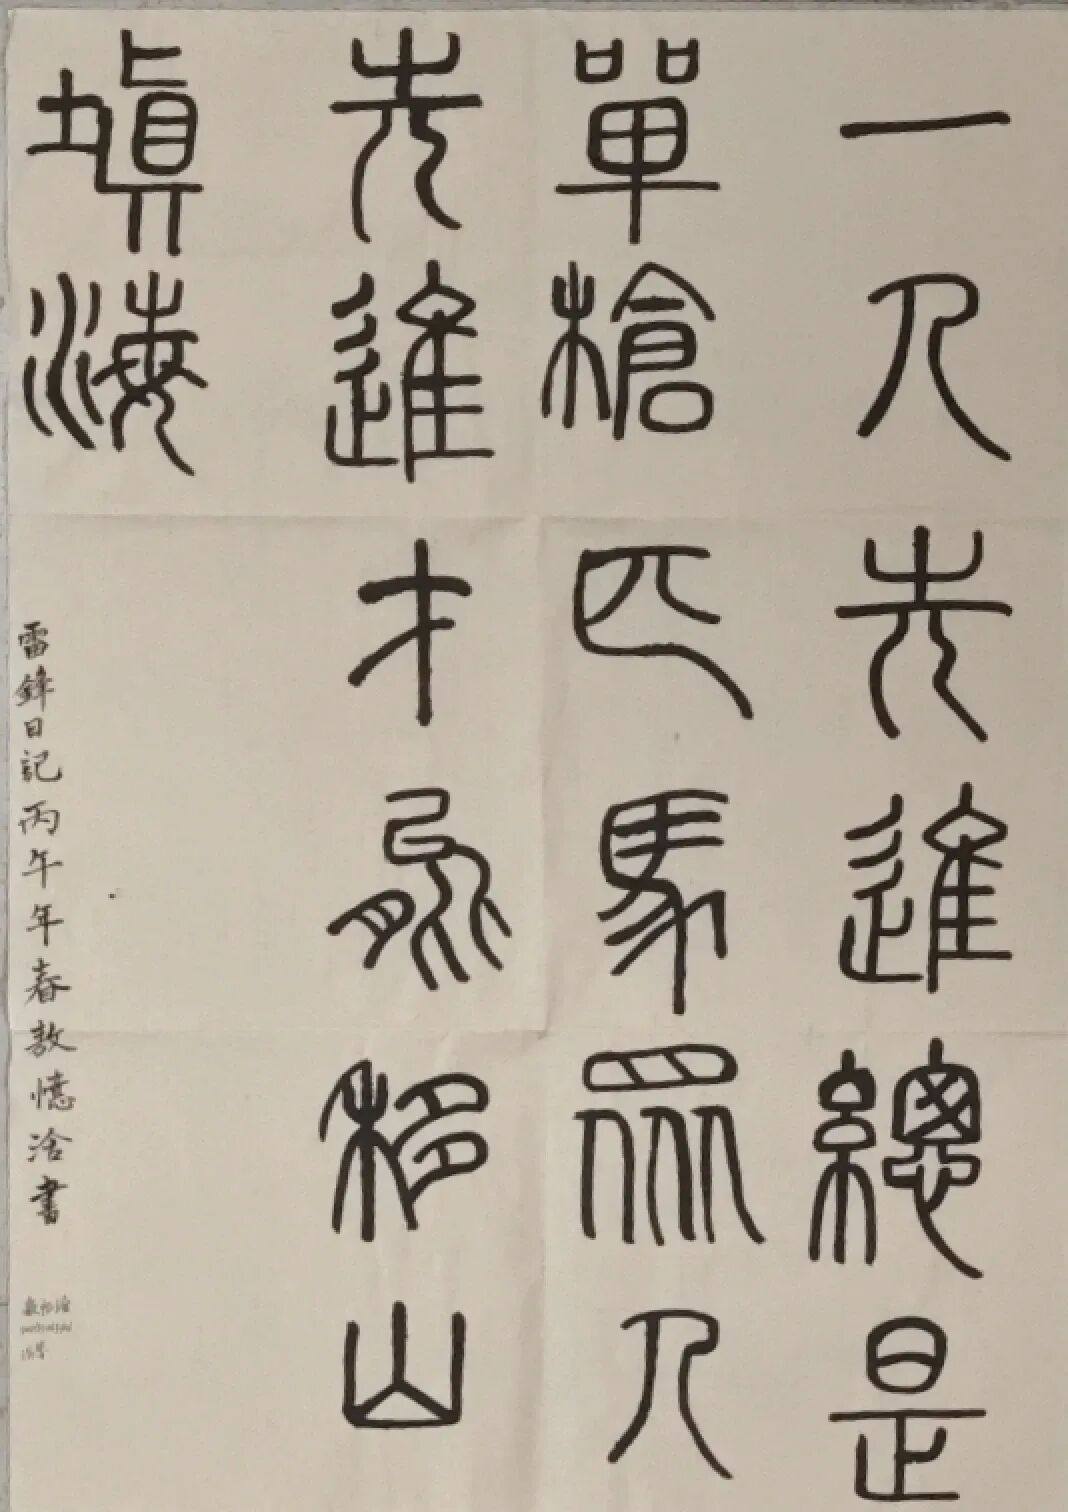 一人先進總是
單槍匹馬眾人
先進才能移山
填海
雷鋒日記丙午年春敖憶浛書